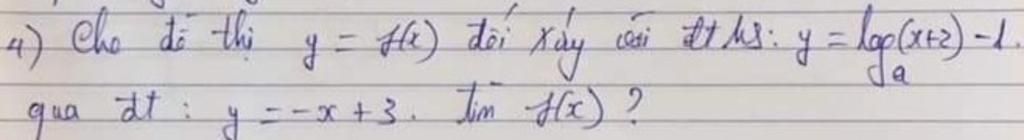 4) Cho đồ thị y = f(x) đối xáy với đt hs: y = logₐ(x+2) - 1.
qua đt : y = -x + 3. Tìm f(x) ?